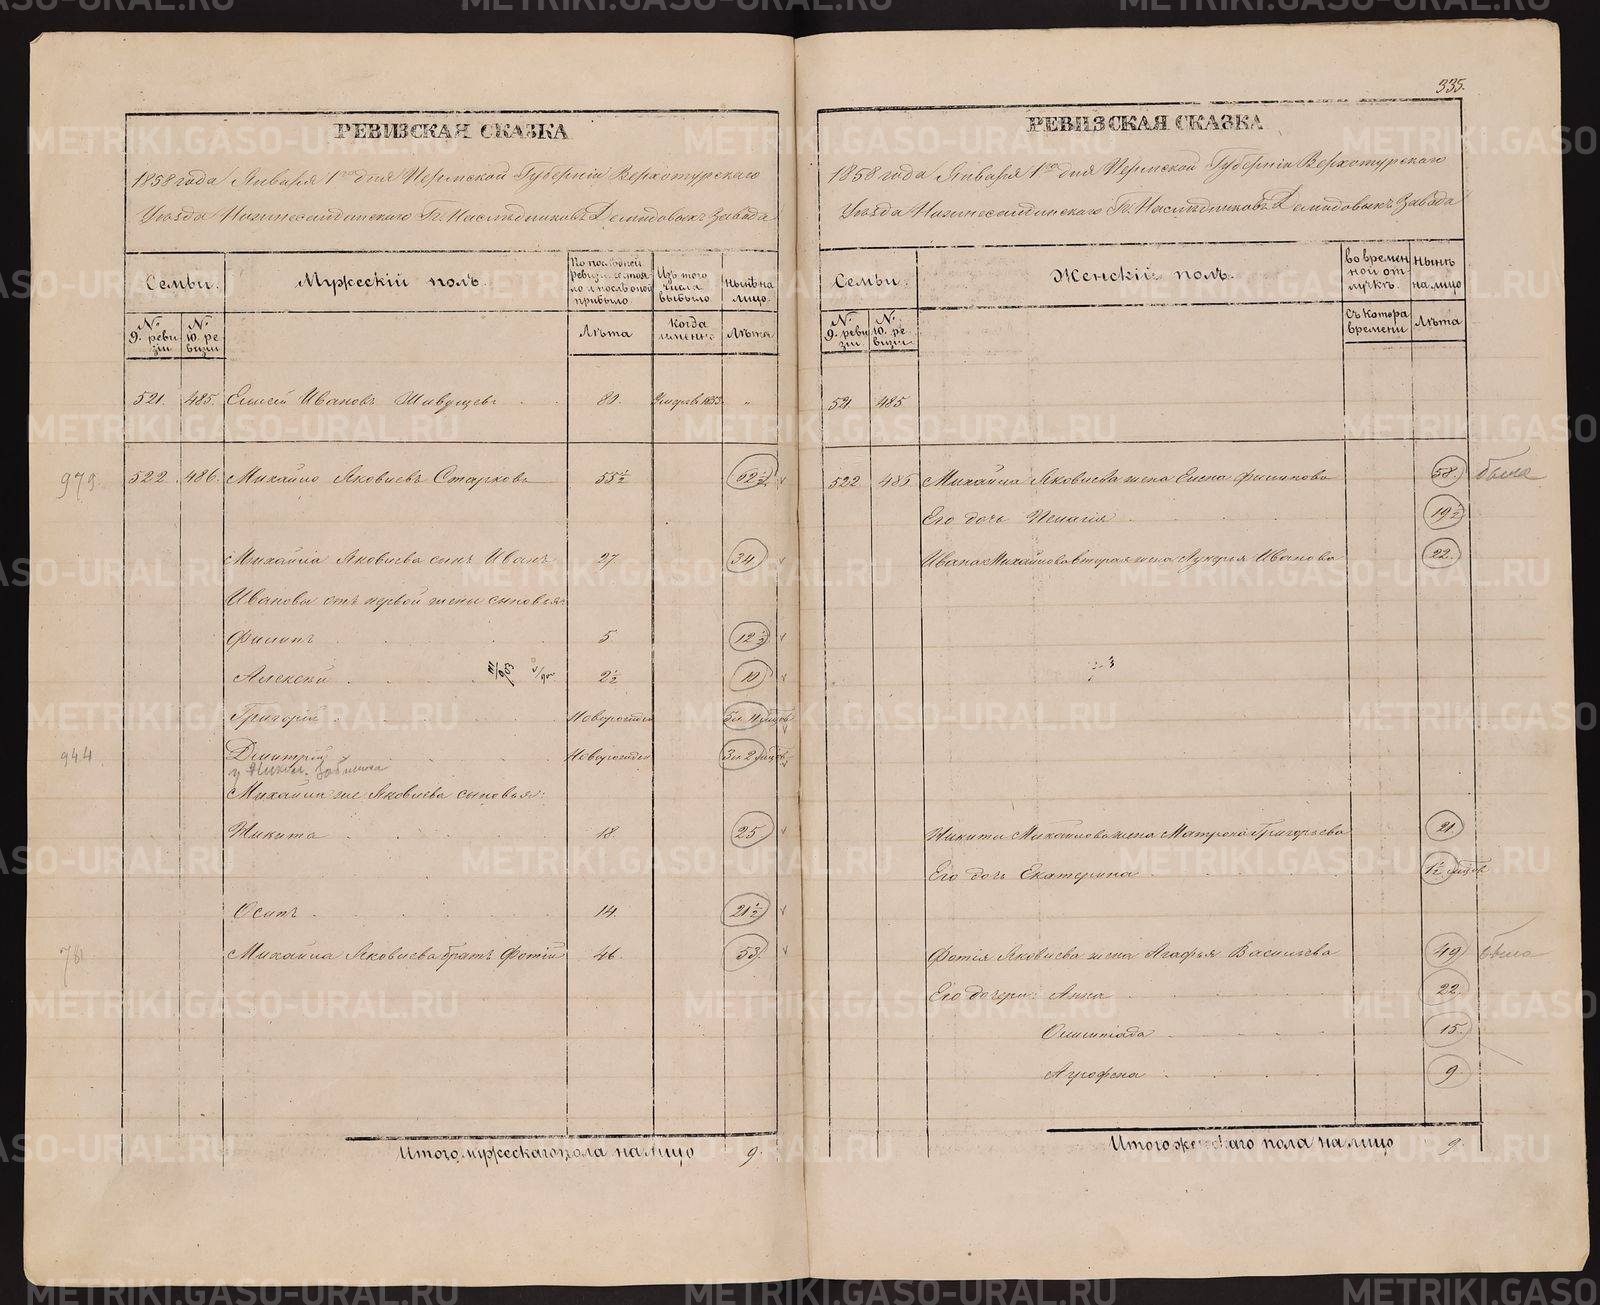 335.
РЕВИЗСКАЯ СКАЗКА
1858 года Января 1го дня Пермской Губерніи Верхотурскаго
Уѣзда Нижнесалдинскаго Гг. Наслѣдниковъ Демидовыхъ Завода
Семьи.
Мужескій полъ.
По послѣдней ревизіи состояло и послѣ оной прибыло
Изъ того числа выбыло
Нынѣ на лицо.
№ 9. ревизіи
№ 10. ревизіи
Лѣта
Когда именно
Лѣта
521. 485. Елисей Ивановъ 80. 1853. "
979. 522 486. Михайло Яковлевъ Старковъ 55½ 62½
Михайла Яковлева сынъ Иванъ 27. 34
Ивана отъ первой жены сыновья:
Филипъ 5 12½
Алексѣй 2½ 10
Григорій Новорожден 5 и 4 мѣсов
944 Дмитрій Новорожден 3 и 2 мѣсов
Михайла же Яковлева сыновья:
Никита 18. 25
Осипъ 14. 21½
Михайла Яковлева братъ Фотій 46. 53.
Итого мужескаго пола на лицо 9.
РЕВИЗСКАЯ СКАЗКА
1858 года Января 1го дня Пермской Губерніи Верхотурскаго
Уѣзда Нижнесалдинскаго Гг. Наслѣдниковъ Демидовыхъ Завода
Семьи.
Женскій полъ.
Во временной отлучкѣ.
Нынѣ на лицо
№ 9. ревизіи
№ 10. ревизіи
Съ котора времени
Лѣта
521 485
522 485 Михайла Яковлева жена Елена Филипова 58.
Его дочь Пелагія 19½
Ивана Михайлова вторая жена Лукерья Иванова 22.
Никита Михайлова жена Матрена Григорьева 21.
Его дочь Екатерина 1½ мѣсов
Фотія Яковлева жена Агафья Васильева 49
Его дочери: Анна 22.
Олимпіада 15.
Агрофена 9.
Итого женскаго пола на лицо 9.
METRIKI.GASO-URAL.RU